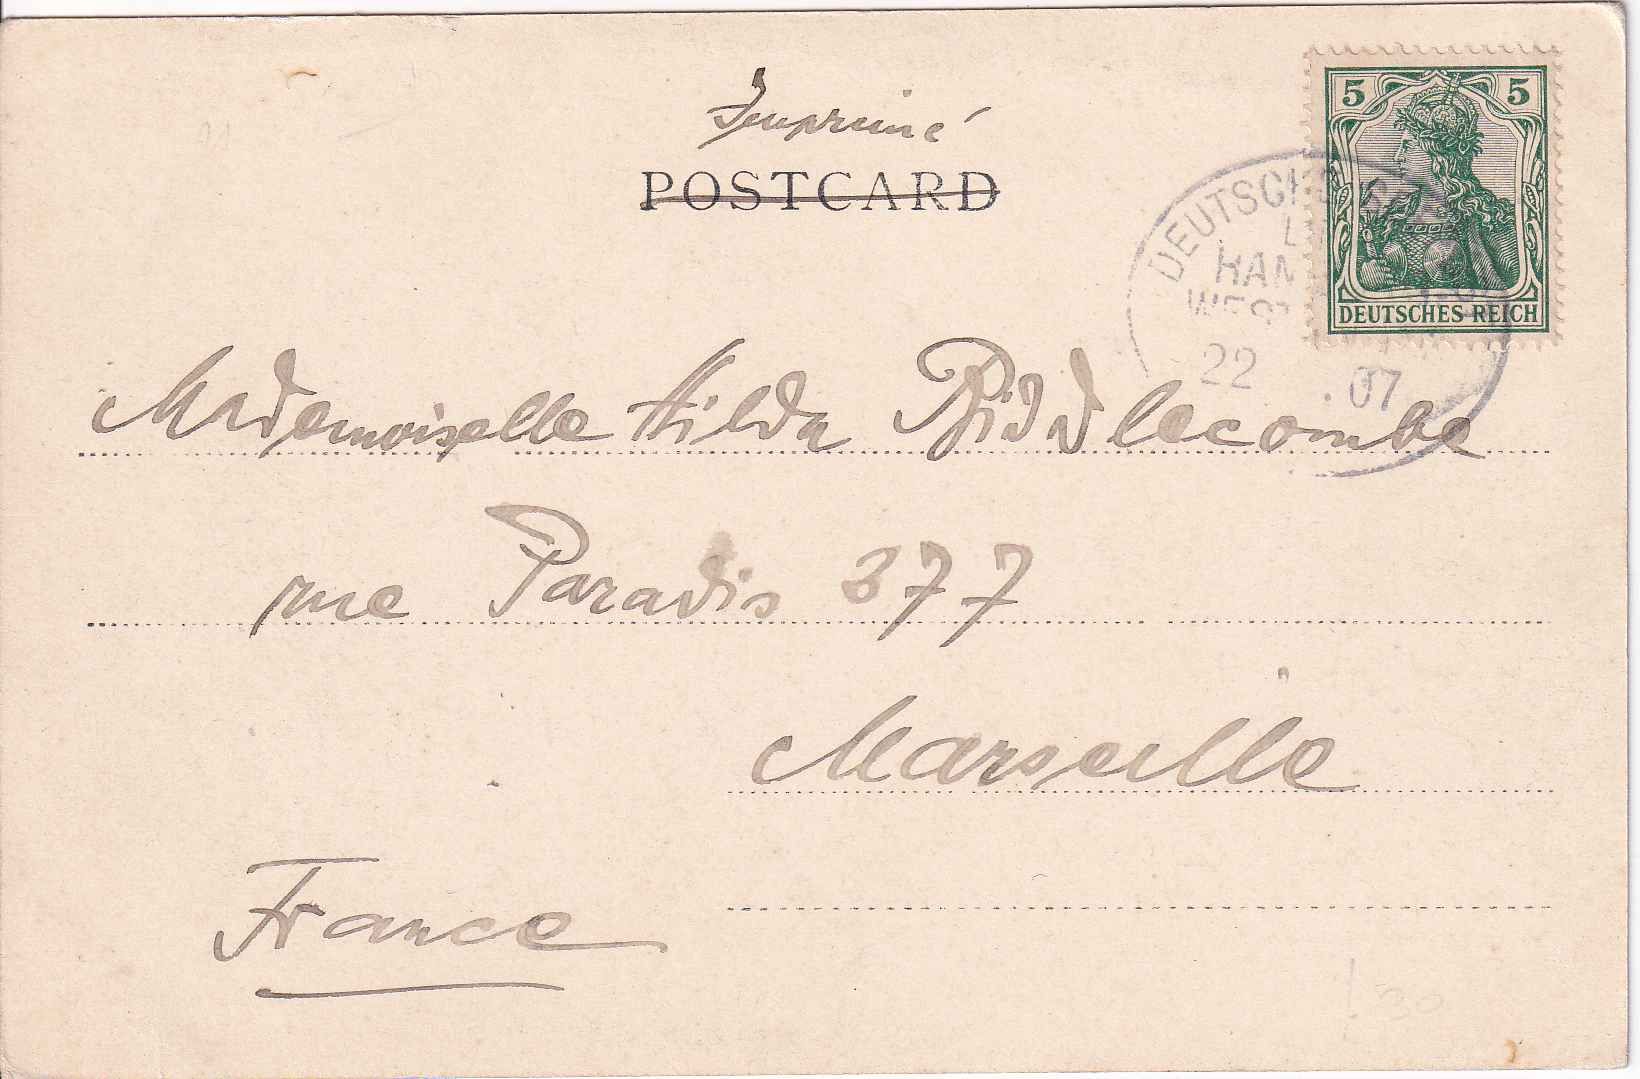 Imprimé
POSTCARD
5 5
DEUTSCHES REICH
DEUTSCHE
HAM
WEST
22 .07
Mademoiselle Hilda Biddlecombe
rue Paradis 377
Marseille
France
30